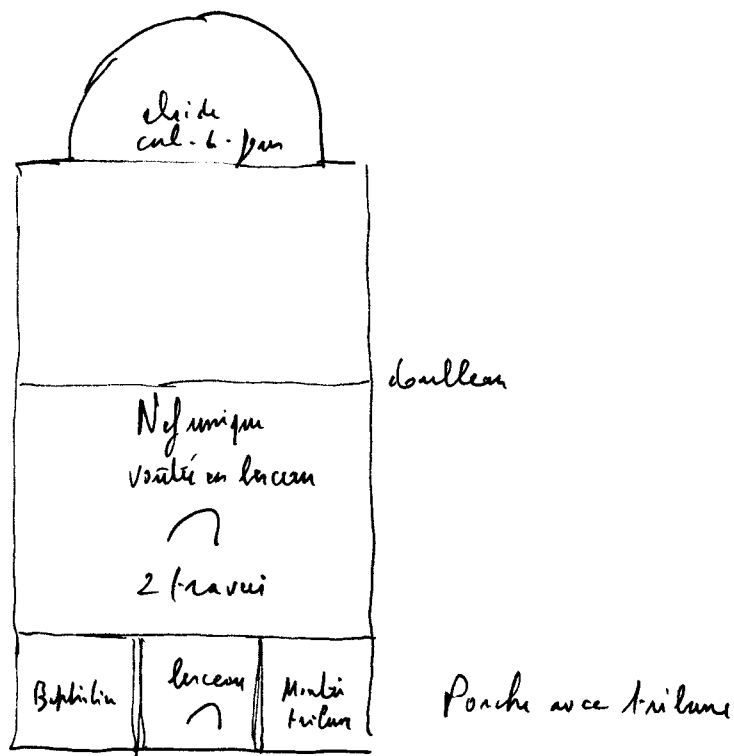 abside
cul-de-four
doubleau
Nef unique
voûtée en berceau
2 travées
Baptistère
berceau
Montée
tribune
Porche avec tribune